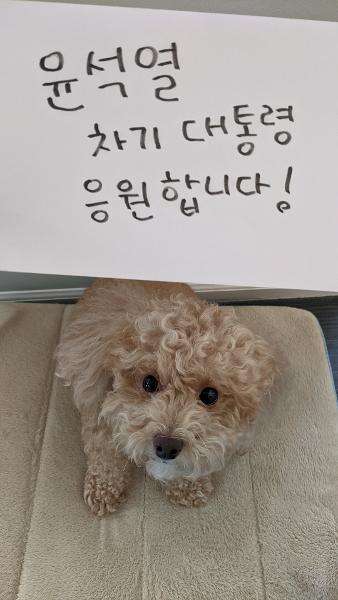 윤석열
차기 대통령
응원합니다!